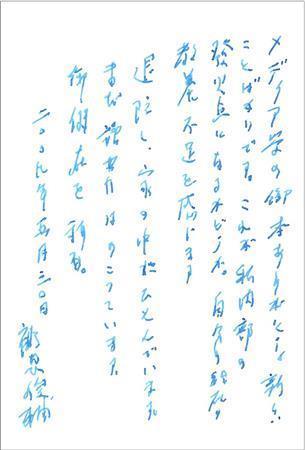 メディア学の御本ありがとう。新しい
ことばかりです。これが私内部の
発火点になるかどうか。自分の経験の
教養不足を感じます
退院し、家の中でひそんでいます。
まだ読書力はのこっています。
御健在を祈る。
二〇〇九年五月三〇日
鶴見俊輔